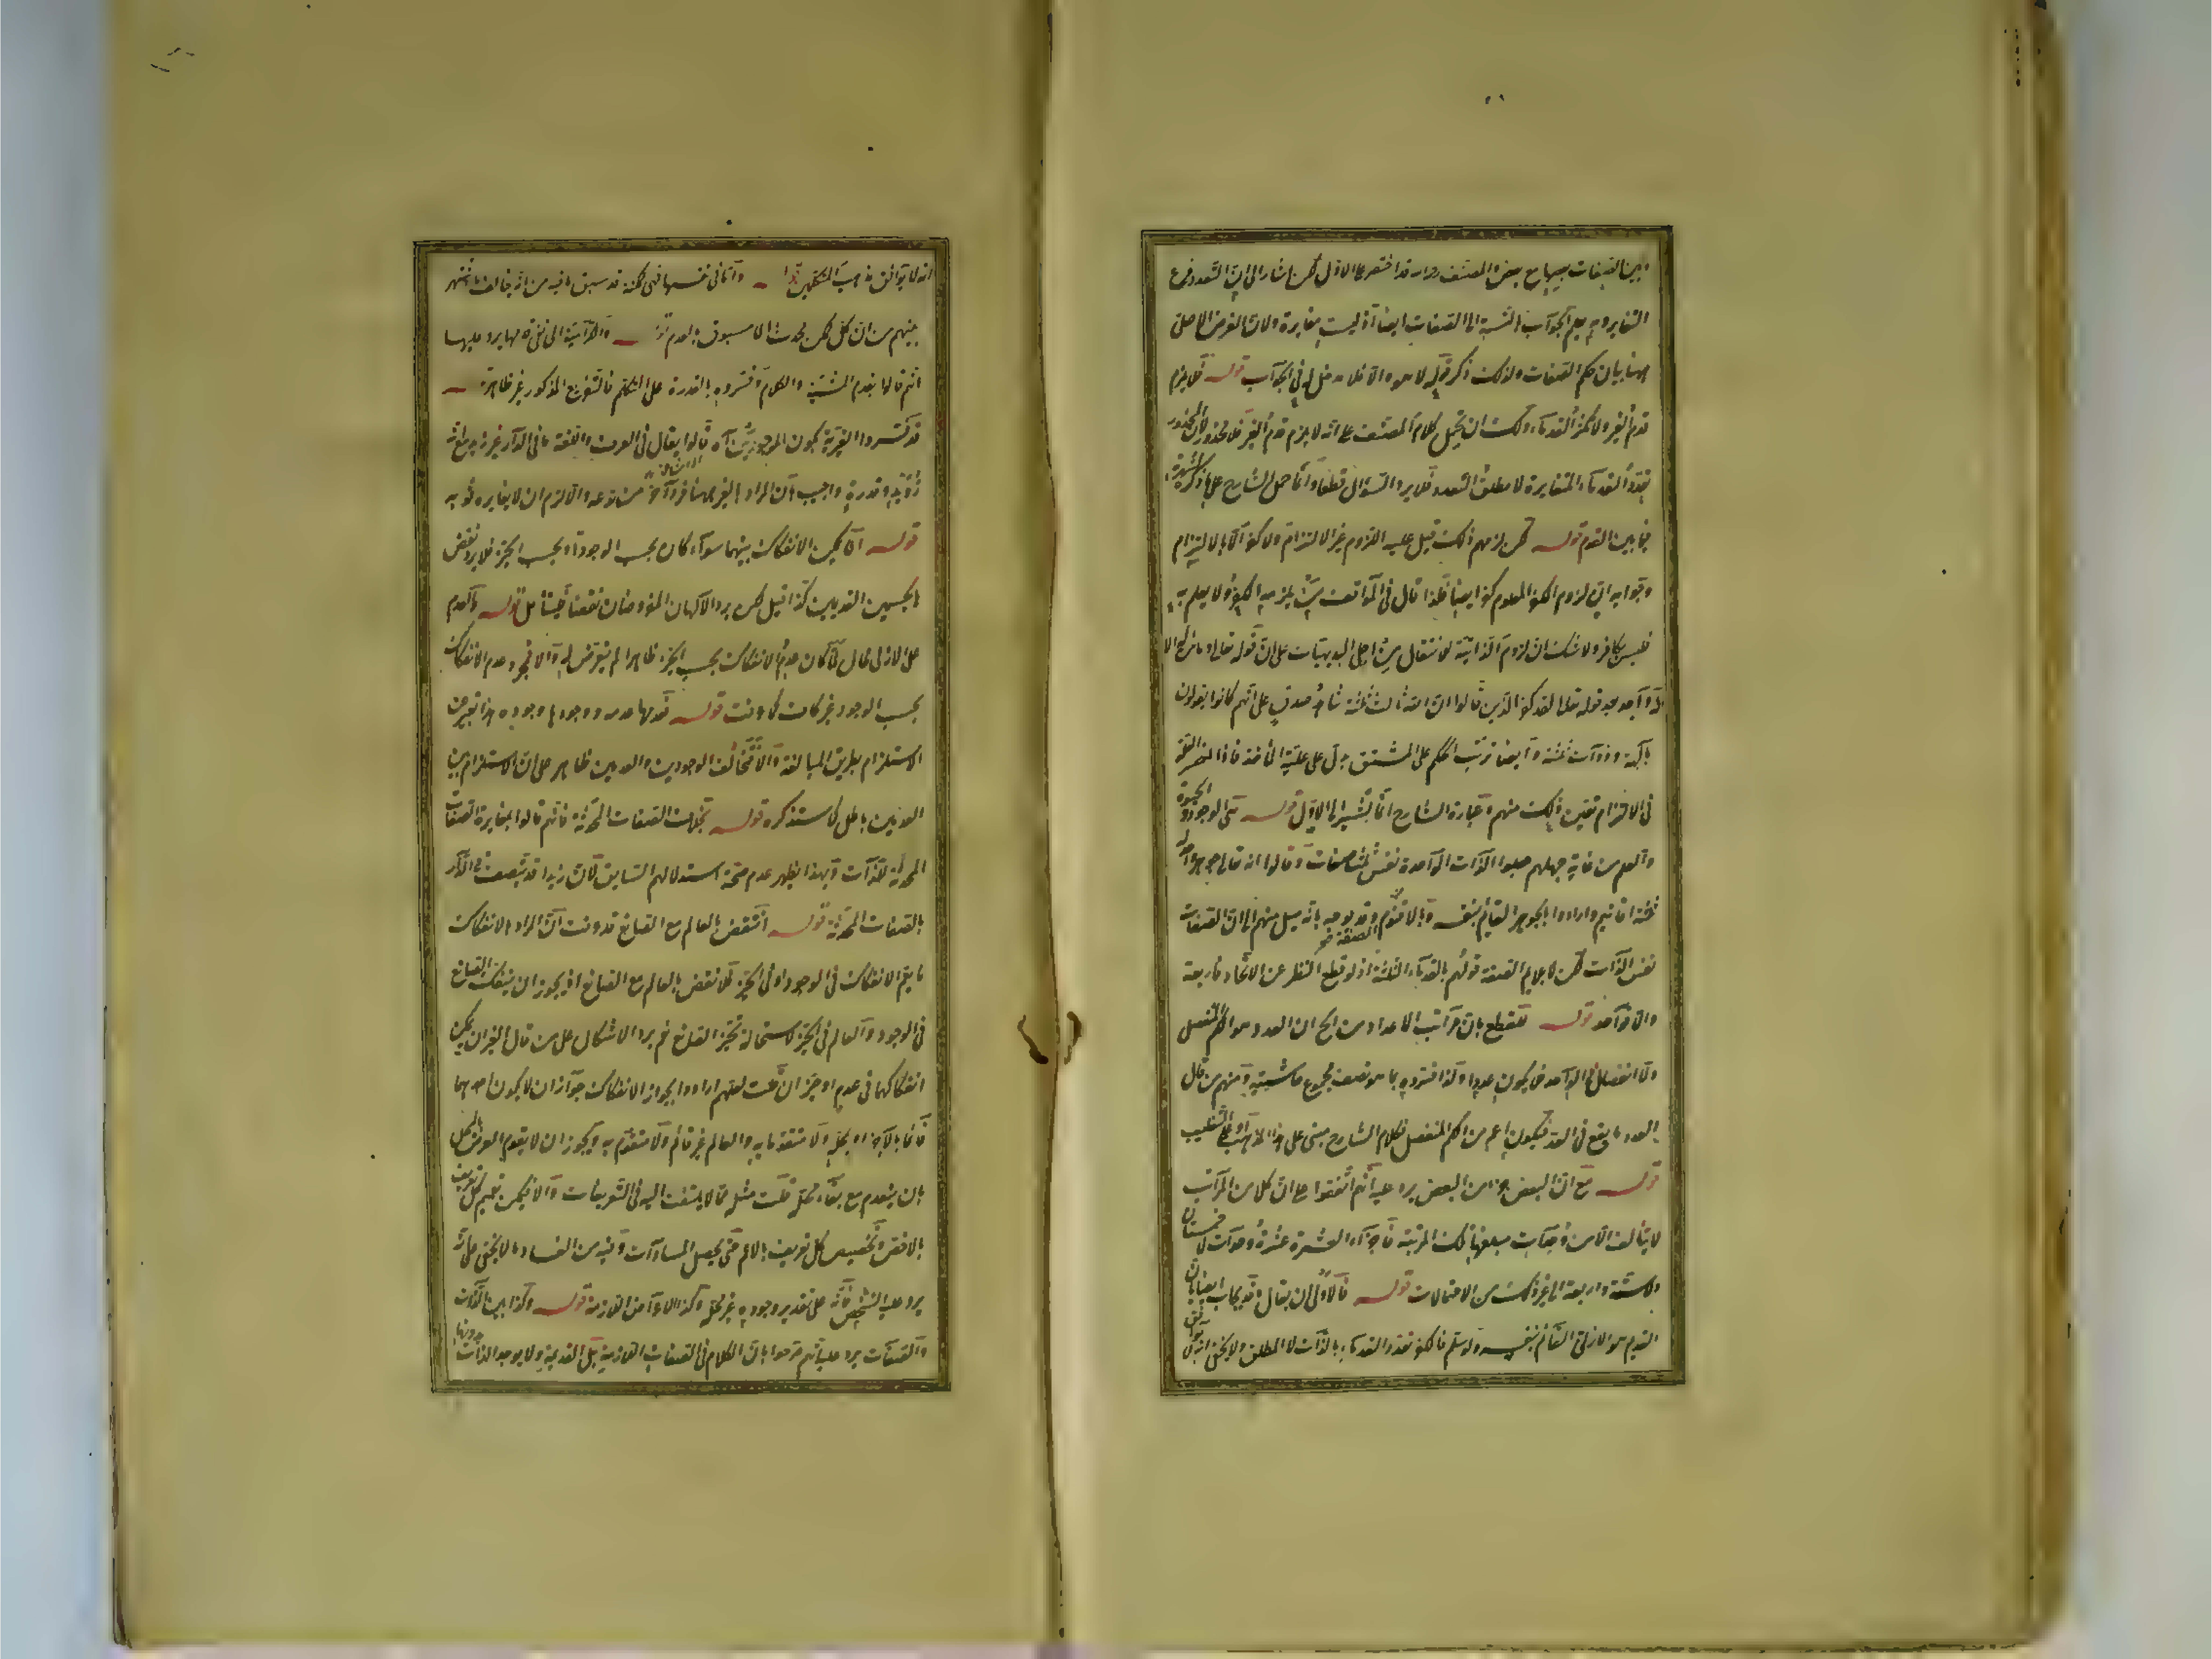 وبين الصفات بعضها مع بعض والمصنف رحمه الله قد اقتصر على الاول لكن اشار الى ان التعدد فرع
التغاير وبه يعلم الجواب بالنسبة الى الصفات ايضا اذ ليست متغايرة ولان الغرض الاصلي
ههنا بيان حكم الصفات ولذلك ذكر قوله لا هو والا فلا مدخل له في الجواب قوله فلا يلزم
قدم الغير ولا تكثر القدماء ولك ان تحمل كلام المصنف على انه لا يلزم قدم الغير فلا محذور لان المحذور
تعدد القدماء المتغايرة لا مطلق التعدد فلا يرد السؤال قطعا وانما حمل الشارح على ما ذكره لشهرته
فيما بين القوم قوله لكن لزمهم ذلك قيل عليه اللزوم غير الالتزام ولا كفر الا بالالتزام
وجوابه ان لزوم الكفر المعلوم كفر ايضا فلذا قال في المواقف من يلزمه الكفر ولا يعلم به
فليس بكافر ولا شك ان لزوم الذاتية للانتقال من اجلى البديهيات على ان قوله تعالى وما من اله الا
اله واحد بعد قوله تعالى لقد كفر الذين قالوا ان الله ثالث ثلثة شاهد صدق على انهم كانوا يقولون
بآلهة وذوات ثلثة وايضا ترتب الحكم على المشتق يدل على علية المأخذ فاذا انحصر العلة
في الالتزام تعين ذلك منهم وعبارة الشارح انما تشير الى الاول قوله هي الوجود والحيوة
والعلم من غاية جهلهم جعلوا الذات الواحدة نفس ثلث صفات وقالوا انه تعالى جوهر واحد له
ثلثة اقانيم وارادوا بالجوهر القائم بنفسه وبالاقنوم الصفة وقد يوجه بانه ميل منهم الى ان الصفات
نفس الذات لكن لا يلايم الصفة قولهم بالقدماء الثلثة اذ لو قطع النظر عن الاتحاد فاربعة
والا فواحد قوله للقطع بان مراتب الاعداد من الخ ان العدد هو الكم المنفصل
ولا انفصال في الواحد فلا يكون عددا ولذا فسروه بما هو نصف مجموع حاشيتيه ومنهم من قال
العدد ما يقع في العد فيكون اعم من الكم المنفصل فكلام الشارح مبني على هذا المذهب او على التغليب
قوله مع ان البعض جزء من البعض يرد عليه انهم اتفقوا على ان كلا من المراتب
لا يتألف الا من وحدات مبلغها تلك المرتبة فاجزاء العشرة عشرة وحدات لا خمستان
ولا ستة واربعة الى غير ذلك من الاحتمالات قوله فالاولى ان يقال قد يجاب ايضا بان
القديم هو الازلي القائم بنفسه ولو سلم فالكفر تعدد القدماء بالذات لا المطلق ولا يخفى انه لا يوافق
انه لا يوافق مذهب المتكلمين قوله واما في نفسها فهي ممكنة قد سبق ما فيه من انه يخالف ما اشتهر
بينهم من ان كل ممكن محدث اي مسبوق بالعدم قوله والكرامية الى نفي قدمها يرد عليها
انهم قالوا بقدم المشية والكلام وفسروه بالقدرة على التكلم فالتفريع المذكور غير ظاهر
قد فسروا الغيرية بكون الموجودين آه قالوا يقال في العرف واللغة ما في الدار غير زيد مع انه
ذو يد وقدرة واجيب بان المراد بالغير ههنا فرد آخر من نوعه والا لزم ان لا يغايره ثوبه
قوله اي يمكن الانفكاك بينهما سواء كان بحسب الوجود او بحسب الحيز فلا يرد نقض
بالجسمين القديمين كذا قيل لكن يرد الالهان المفروضان نقضا فليتأمل قوله والعدم
على الازلي محال لما كان عدم الانفكاك بحسب الحيز ظاهرا لم يتعرض له والا فمجرد عدم الانفكاك
بحسب الوجود غير كاف كما عرفت قوله فعدمها عدمه ووجودها وجوده هذا تعبير عن
الاستلزام بطريق المبالغة والا فتخالف الوجودين والعدمين ظاهر على ان الاستلزام بين
العدمين باطل كما ستذكره قوله بخلاف الصفات المحدثة فانهم قالوا بمغايرة الصفات
المحدثة للذات وبهذا يظهر عدم صحة استدلالهم السابق لان زيدا قد يتصف في الدار
بالصفات المحدثة قوله انتقض بالعالم مع الصانع قد عرفت ان المراد بالانفكاك
ما يعم الانفكاك في الوجود او في الحيز فلا نقض بالعالم مع الصانع اذ يجوز ان ينفك الصانع
في الوجود والعالم في الحيز لاستحالة تحيز الصانع نعم يرد الاشكال على من قال الغيران يمكن
انفكاكهما في عدم او حيز ان قلت لعلهم ارادوا بجواز الانفكاك جواز ان لا يكون احدهما
قائما بالآخر او بمحله ولا متقدما به والعالم غير قائم ولا متقوم به ويجوز ان لا يقوم العرض بالمحل
بان ينعدم مع بقاء محله قلت مثله مما لا يلتفت اليه في التعريفات والا فيمكن تعميم كل تعريف
بالاخص وتخصيص كل تعريف بالاعم حتى يحصل المساواة وفيه من الفساد ما لا يخفى على انه
يرد عليه التشخص فانه على تقدير وجوده غير محله وكذا الاعراض اللازمة قوله وكذا بين الذات
والصفات يرد عليه انهم صرحوا بان الكلام في الصفات اللازمة بل القديمة ولا يوجد الذات بدونها